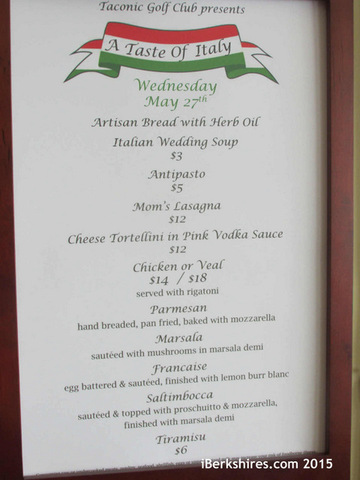 Taconic Golf Club presents
A Taste Of Italy
Wednesday
May 27th
Artisan Bread with Herb Oil
Italian Wedding Soup
$3
Antipasto
$5
Mom's Lasagna
$12
Cheese Tortellini in Pink Vodka Sauce
$12
Chicken or Veal
$14 / $18
served with rigatoni
Parmesan
hand breaded, pan fried, baked with mozzarella
Marsala
sautéed with mushrooms in marsala demi
Francaise
egg battered & sautéed, finished with lemon burr blanc
Saltimbocca
sautéed & topped with proschuitto & mozzarella,
finished with marsala demi
Tiramisu
$6
iBerkshires.com 2015